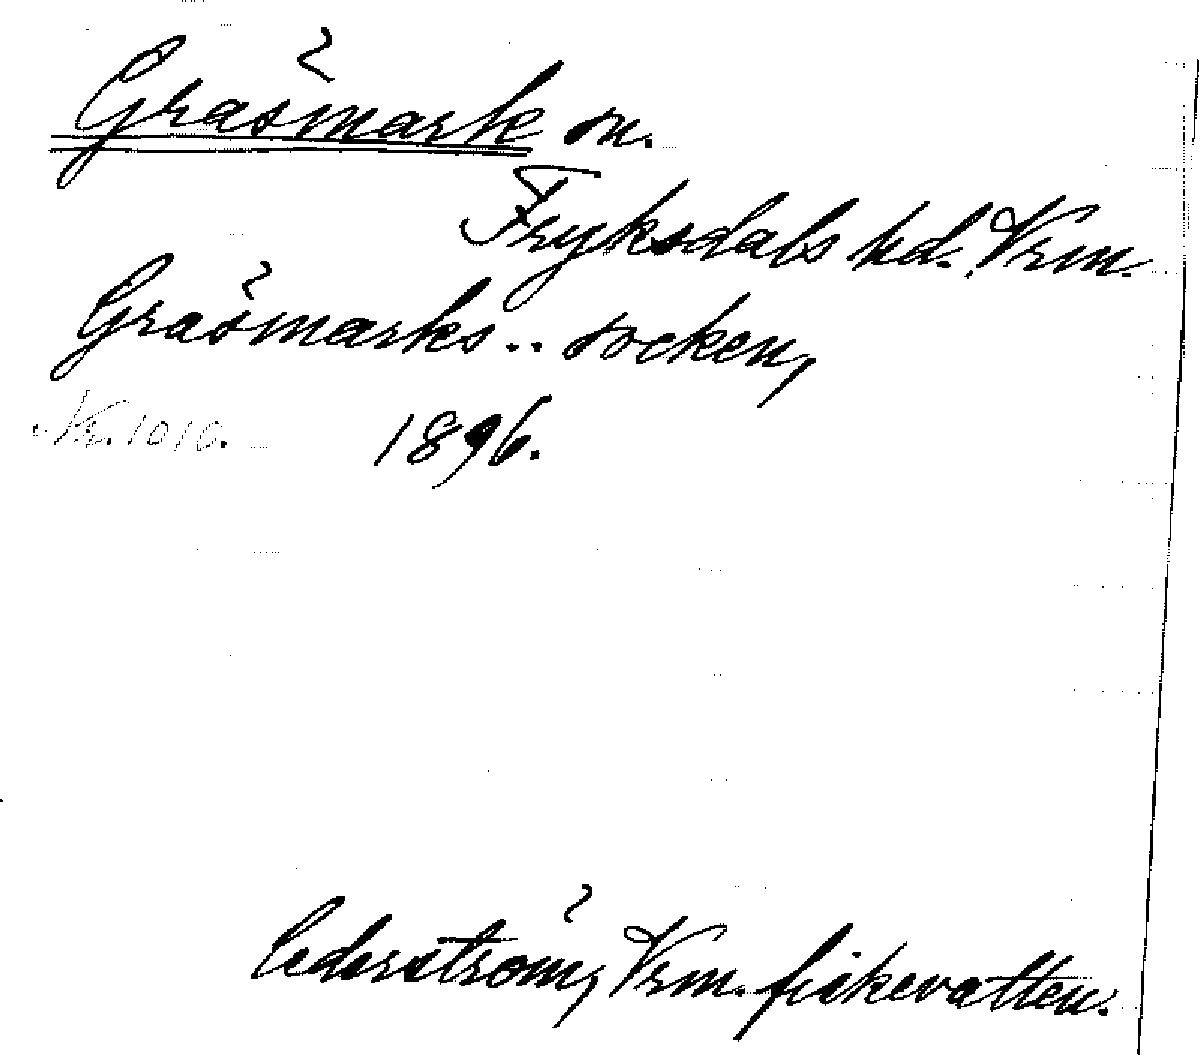 Gräsmark sn.
Fryksdals hd. Vrm.
Gräsmarks .. socken,
Nr. 1010. 1896.
Cederström, Vrm. fiskevatten.